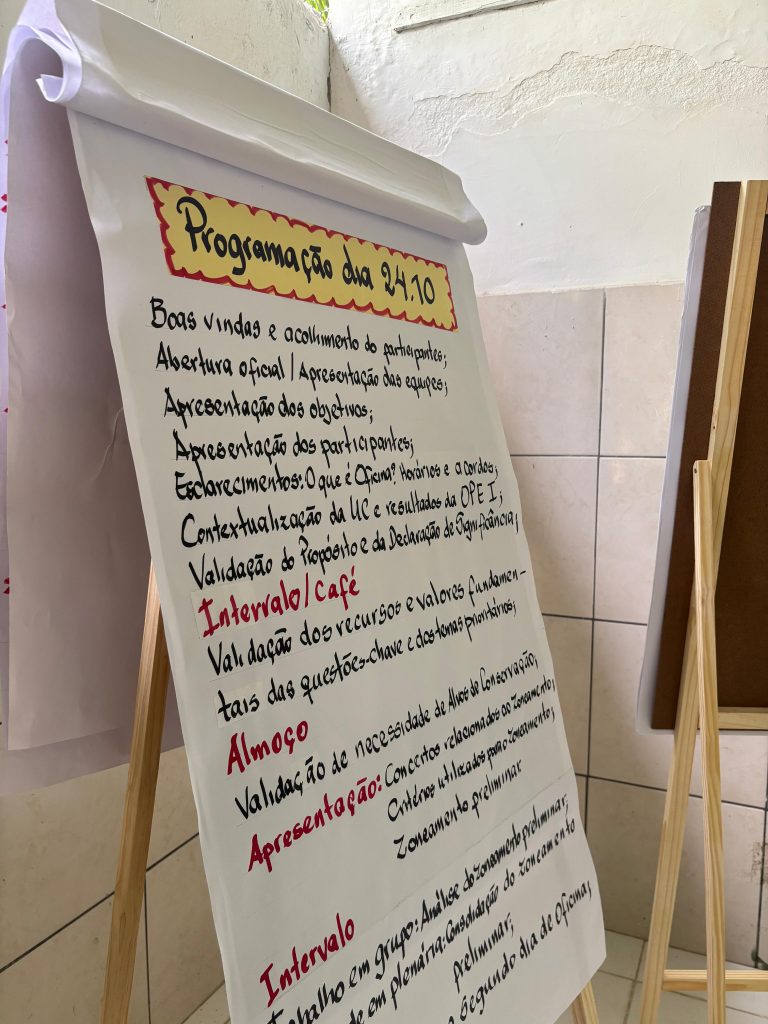 Programação dia 24.10
Boas vindas e acolhimento do participantes;
Abertura oficial / Apresentação das equipes;
Apresentação dos objetivos;
Apresentação dos participantes;
Esclarecimentos: O que é Oficina? Horários e acordos;
Contextualização da UC e resultados da OPE I;
Validação do Propósito e da Declaração de Significância;
Intervalo/Café
Validação dos recursos e valores fundamen-
tais das questões-chave e dos temas prioritários;
Almoço
Validação de necessidade de Alvos de Conservação;
Apresentação: Conceitos relacionados ao zoneamento;
Critérios utilizados para o zoneamento;
Zoneamento preliminar
Intervalo
Trabalho em grupo: Análise do zoneamento preliminar;
de em plenária: Consolidação do zoneamento
preliminar;
o segundo dia de Oficina;